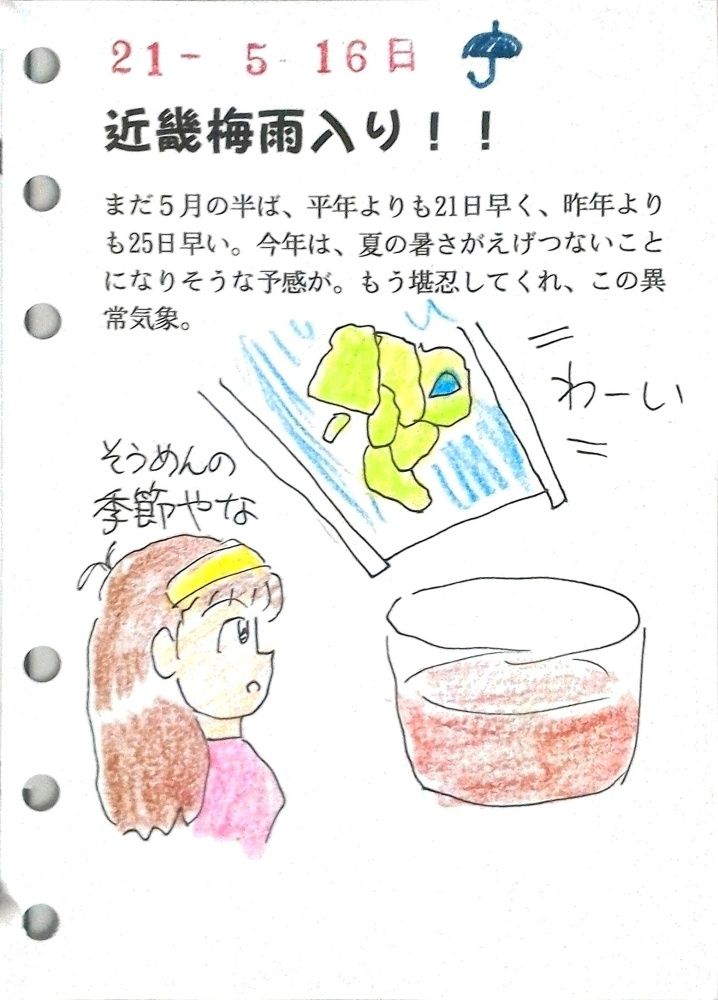 21- 5 - 16日
近畿梅雨入り！！
まだ５月の半ば、平年よりも21日早く、昨年より
も25日早い。今年は、夏の暑さがえげつないこと
になりそうな予感が。もう堪忍してくれ、この異
常気象。
わーい
そうめんの
季節やな